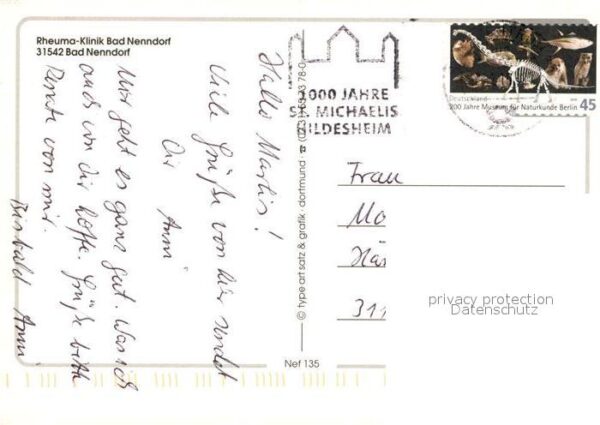 Rheuma-Klinik Bad Nenndorf
31542 Bad Nenndorf
Hallo Martin!
Viele Grüße von hier sendet
Dir Anni
Mir geht es ganz gut. Was ich
auch von dir hoffe. Grüße bitte
Renate von mir.
Bis bald Anni
© type art satz & grafik · dortmund · ☎ (0231) 78-0
Nef 135
1000 JAHRE
ST. MICHAELIS
HILDESHEIM
Deutschland
200 Jahre Museum für Naturkunde Berlin
45
Frau
Mo
Hän
311
privacy protection
Datenschutz